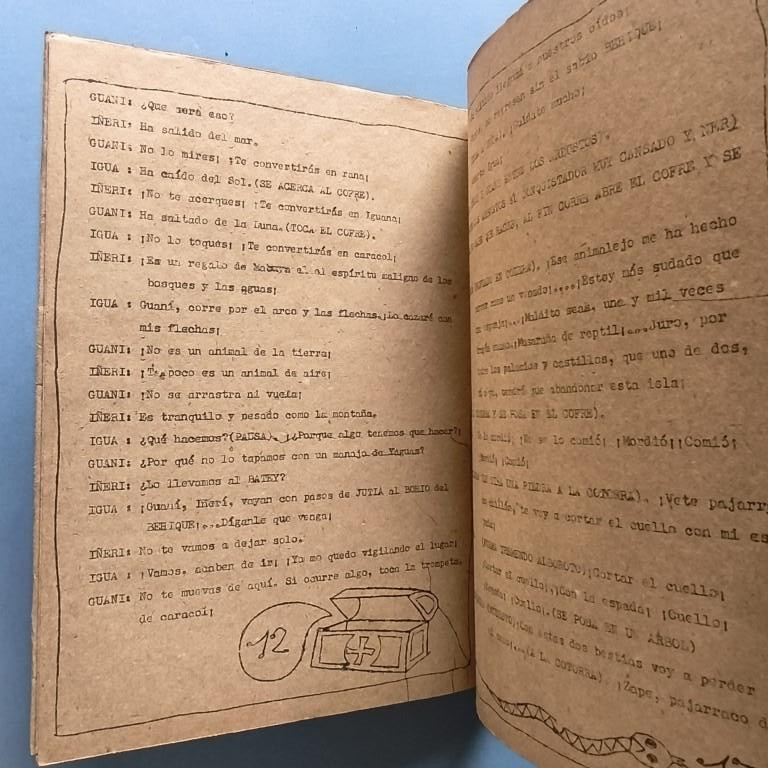 GUANI: ¿Que será eso?
IÑERI: Ha salido del mar.
GUANI: No lo mires; ¡Te convertirás en rana¡
IGUA : Ha caído del Sol.(SE ACERCA AL COFRE).
IÑERI: ¡No te acerques¡ ¡Te convertirás en Iguana¡
GUANI: Ha saltado de la Luna.(TOCA EL COFRE).
IGUA : ¡No lo toques¡ ¡Te convertirás en caracol¡
IÑERI: ¡Es un regalo de Mabuya el al espíritu maligno de los
bosques y las aguas¡
IGUA : Guaní, corre por el arco y las flechas. ¡Lo cazaré con
mis flechas¡
GUANI: ¡No es un animal de la tierra¡
IÑERI: ¡Tampoco es un animal de aire¡
GUANI: ¡No se arrastra ni vuela¡
IÑERI: Es tranquilo y pesado como la montaña.
IGUA : ¿Qué hacemos?(PAUSA). ¡Porque algo tenemos que hacer?¡
GUANI: ¿Por qué no lo tapamos con un manojo de Yaguas?
IÑERI: ¿Lo llevamos al BATEY?
IGUA : ¡Guaní, Iñerí, vayan con pasos de JUTIA al BOHIO del
BEHIQUE¡...Díganle que venga¡
IÑERI: No te vamos a dejar solo.
IGUA : ¡Vamos, acaben de ir¡ ¡Yo me quedo vigilando el lugar¡
GUANI: No te muevas de aquí. Si ocurre algo, toca la trompeta
de caracol¡
12
nuestros oídos¡
regresen sin el sabio BEHIQUE¡
¡Cuídate mucho¡
ENTRE LOS ARBUSTOS).
CONQUISTADOR MUY CANSADO Y NER)
AL FIN CORRE ABRE EL COFRE Y SE
¡Ese animalejo me ha hecho
correr como un venado¡....¡Estoy más sudado que
¡Maldito seas, una y mil veces
de reptil¡...Juro, por
los palacios y castillos, que uno de dos,
que abandonar esta isla¡
Y SE POSA EN EL COFRE).
¡No se lo comió¡ ¡Mordió¡¡Comió¡
¡Comió¡
UNA PIEDRA A LA COTORRA). ¡Vete pajarr
te voy a cortar el cuello con mi es
TREMENDO ALBOROTO)¡Cortar el cuello¡
el cuello¡¡Con la espada¡ ¡Cuello¡
¡Cuello¡.(SE POSA EN UN ARBOL)
estas dos bestias voy a perder
(A LA COTORRA). ¡Zape, pajarraco d